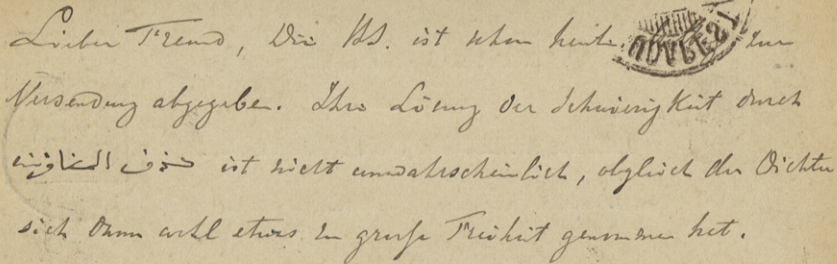 Lieber Freund, Die HS. ist schon heute zur
Versendung abgegeben. Ihre Lösung der Schwierigkeit durch
ist nicht unwahrscheinlich, obgleich der Dichter
sich dann wohl etwas zu große Freiheit genommen hat.